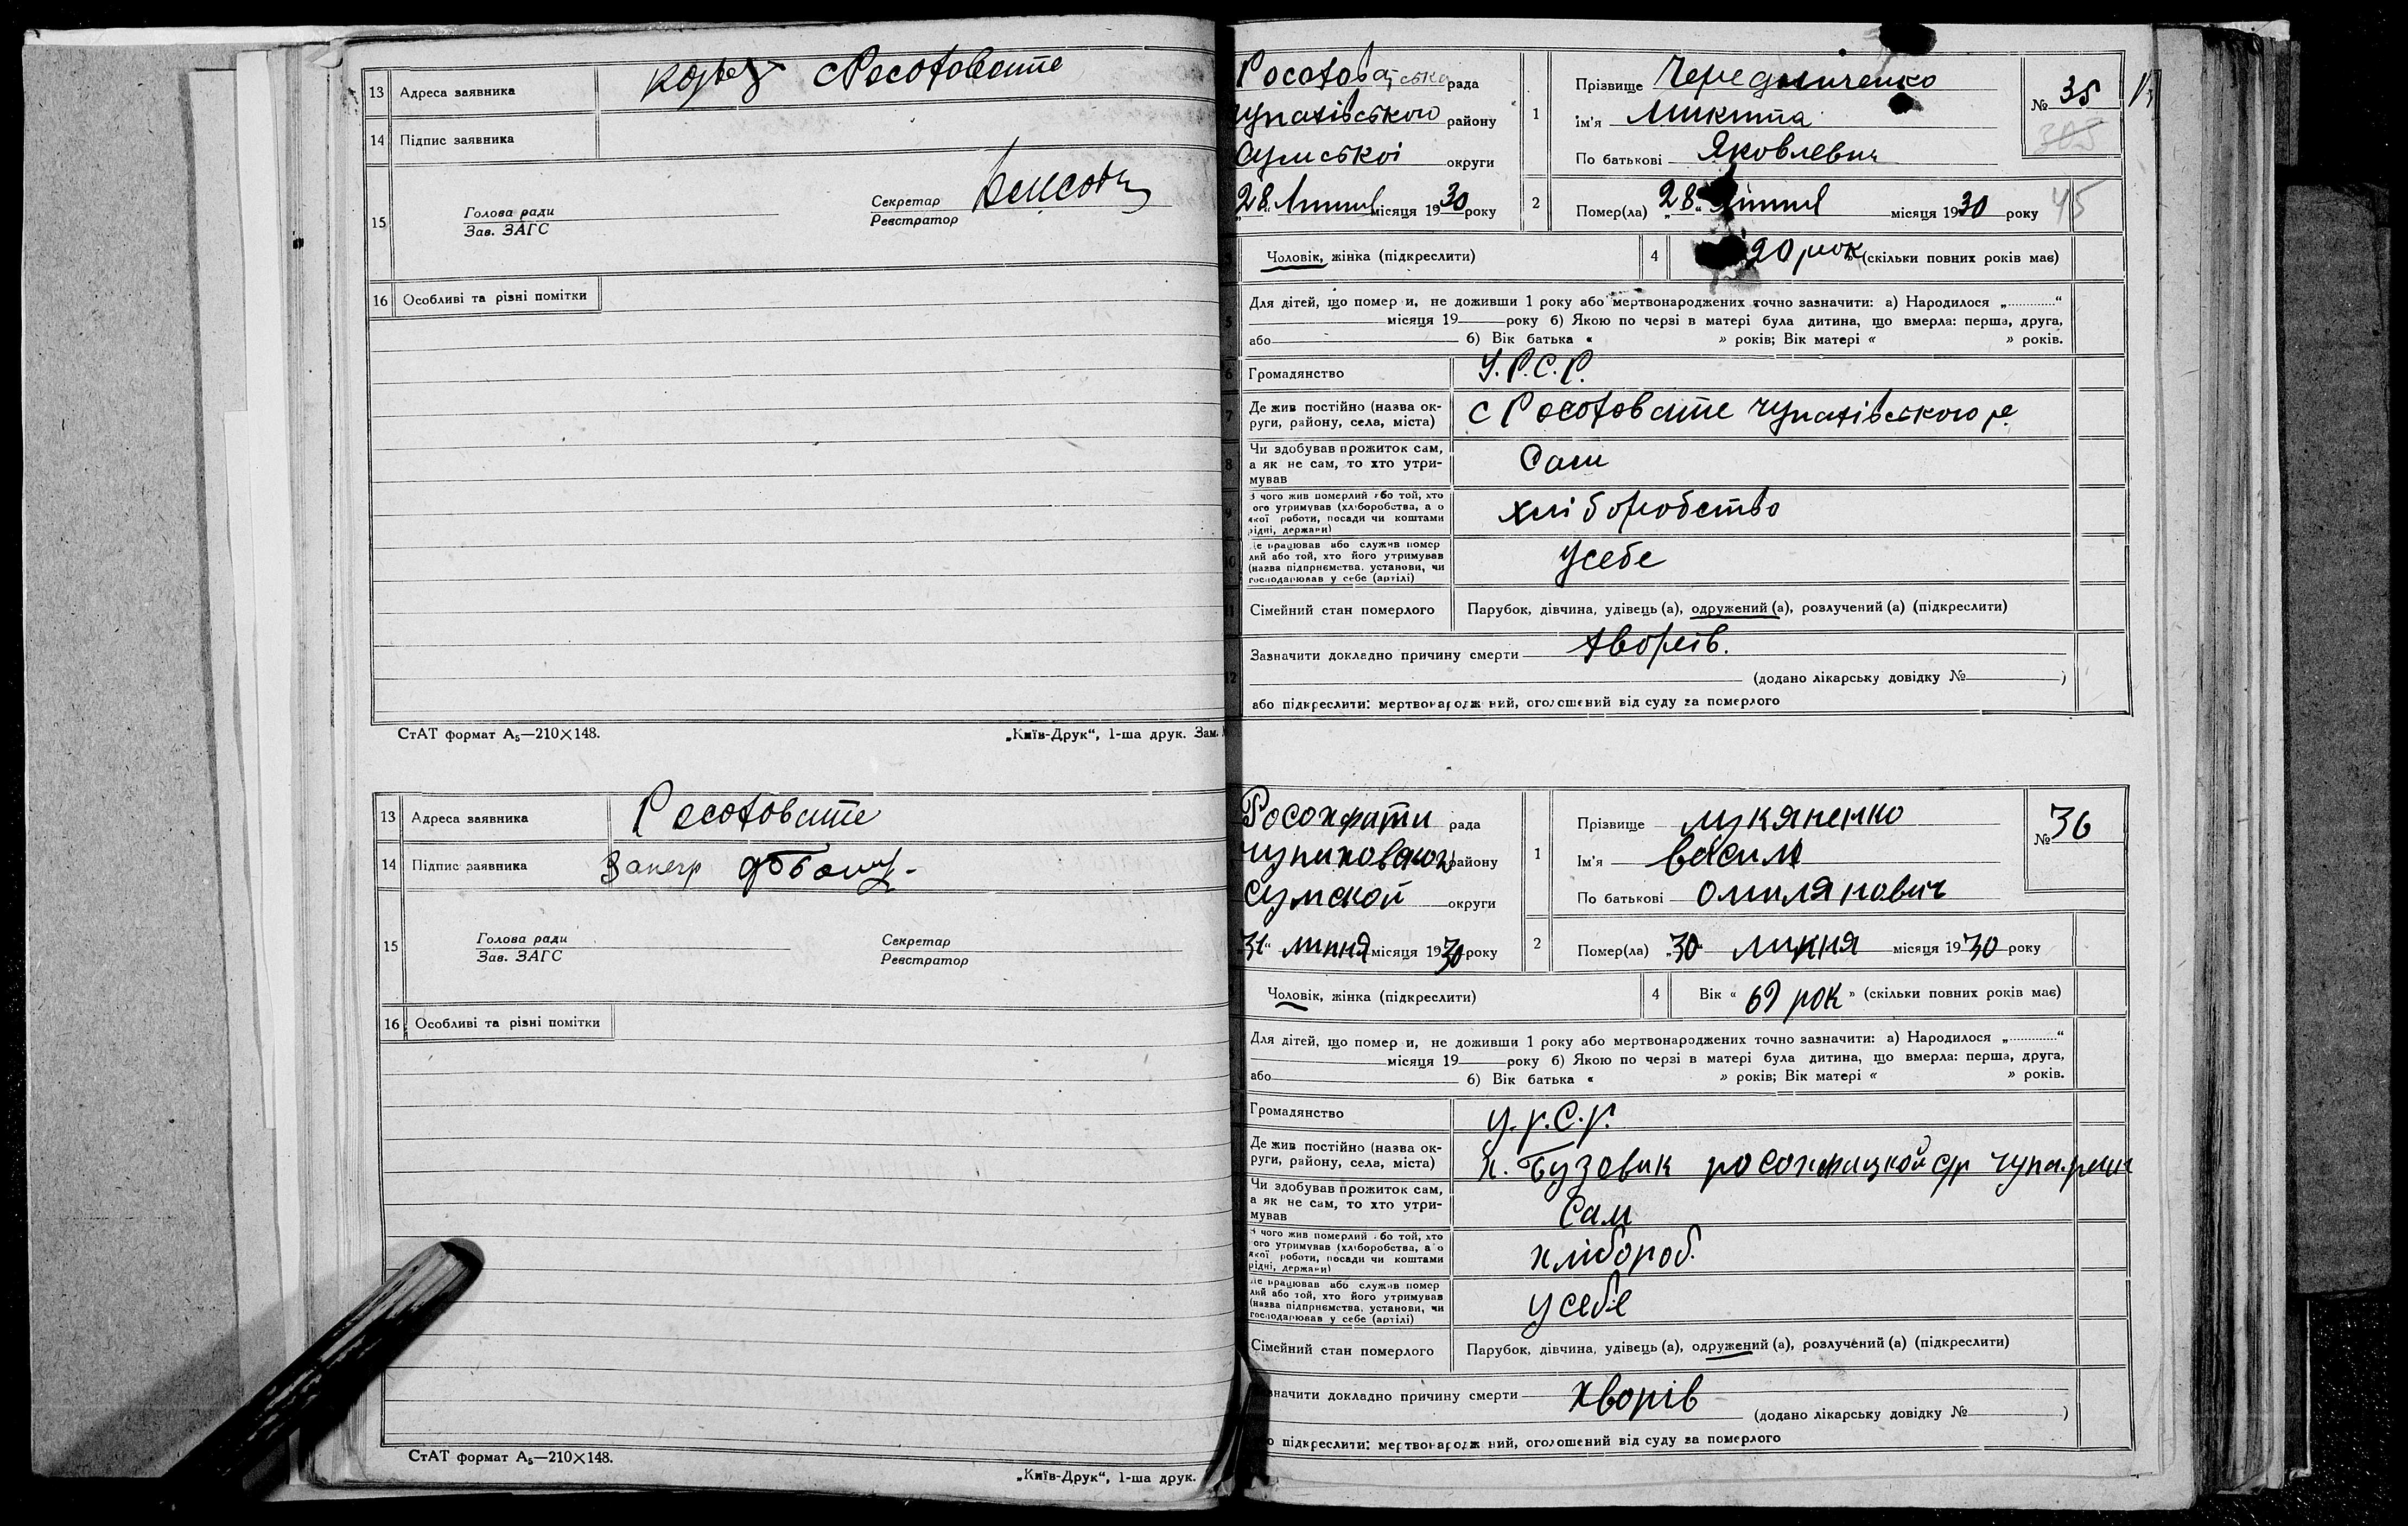 13 Адреса заявника с Росоховате
14 Підпис заявника
15 Голова ради
Зав. ЗАГС
Секретар
Реєстратор
16 Особливі та різні помітки
СтАТ формат А₅—210×148.
„Київ-Друк“, 1-ша друк. Зам.
13 Адреса заявника Росоховате
14 Підпис заявника
15 Голова ради
Зав. ЗАГС
Секретар
Реєстратор
16 Особливі та різні помітки
СтАТ формат А₅—210×148.
„Київ-Друк“, 1-ша друк.
рада
Чупахівського району
Сумської округи
„28“ Липня місяця 1930 року
1 Прізвище Чередниченко
Ім'я Микита
По батькові Яковлевич
№ 35
305
2 Помер(ла) „28“ Липня місяця 1930 року
45
Чоловік, жінка (підкреслити)
4 90 рок (скільки повних років має)
5 Для дітей, що помер и, не доживши 1 року або мертвонароджених точно зазначити: а) Народилося „............“
місяця 19 року б) Якою по черзі в матері була дитина, що вмерла: перша, друга,
або б) Вік батька « » років; Вік матері « » років.
6 Громадянство У.Р.С.Р.
7 Де жив постійно (назва ок-
руги, району, села, міста) с Росоховате Чупахівського р.
8 Чи здобував прожиток сам,
а як не сам, то хто утри-
мував Сам
9 З чого жив померлий або той, хто
ого утримував (хліборобства, а о
якої роботи, посади чи коштами
рідні, держави) хліборобство
10 Де працював або служив помер
лий або той, хто його утримував
(назва підприємства, установи, чи
господарював у себе (артілі) У себе
11 Сімейний стан померлого Парубок, дівчина, удівець (а), одружений (а), розлучений (а) (підкреслити)
12 Зазначити докладно причину смерти хворів.
(додано лікарську довідку № )
або підкреслити: мертвонародж ний, оголошений від суду за померлого
рада
району
Сумской округи
„31“ липня місяця 1930 року
1 Прізвище Лукяненко
Ім'я Василь
По батькові Омилянович
№ 36
2 Помер(ла) „30“ липня місяця 1930 року
Чоловік, жінка (підкреслити)
4 Вік « 69 рок » (скільки повних років має)
Для дітей, що помер и, не доживши 1 року або мертвонароджених точно зазначити: а) Народилося „............“
місяця 19 року б) Якою по черзі в матері була дитина, що вмерла: перша, друга,
або б) Вік батька « » років; Вік матері « » років.
Громадянство У.Р.С.Р.
Де жив постійно (назва ок-
руги, району, села, міста) х. Бузовик
Чи здобував прожиток сам,
а як не сам, то хто утри-
мував Сам
З чого жив померлий або той, хто
ого утримував (хліборобства, а о
якої роботи, посади чи коштами
рідні, держави) хлібороб.
Де працював або служив помер
лий або той, хто його утримував
(назва підприємства, установи, чи
господарював у себе (артілі) у себе
Сімейний стан померлого Парубок, дівчина, удівець (а), одружений (а), розлучений (а) (підкреслити)
значити докладно причину смерти хворів
(додано лікарську довідку № )
о підкреслити: мертвонародж ний, оголошений від суду за померлого